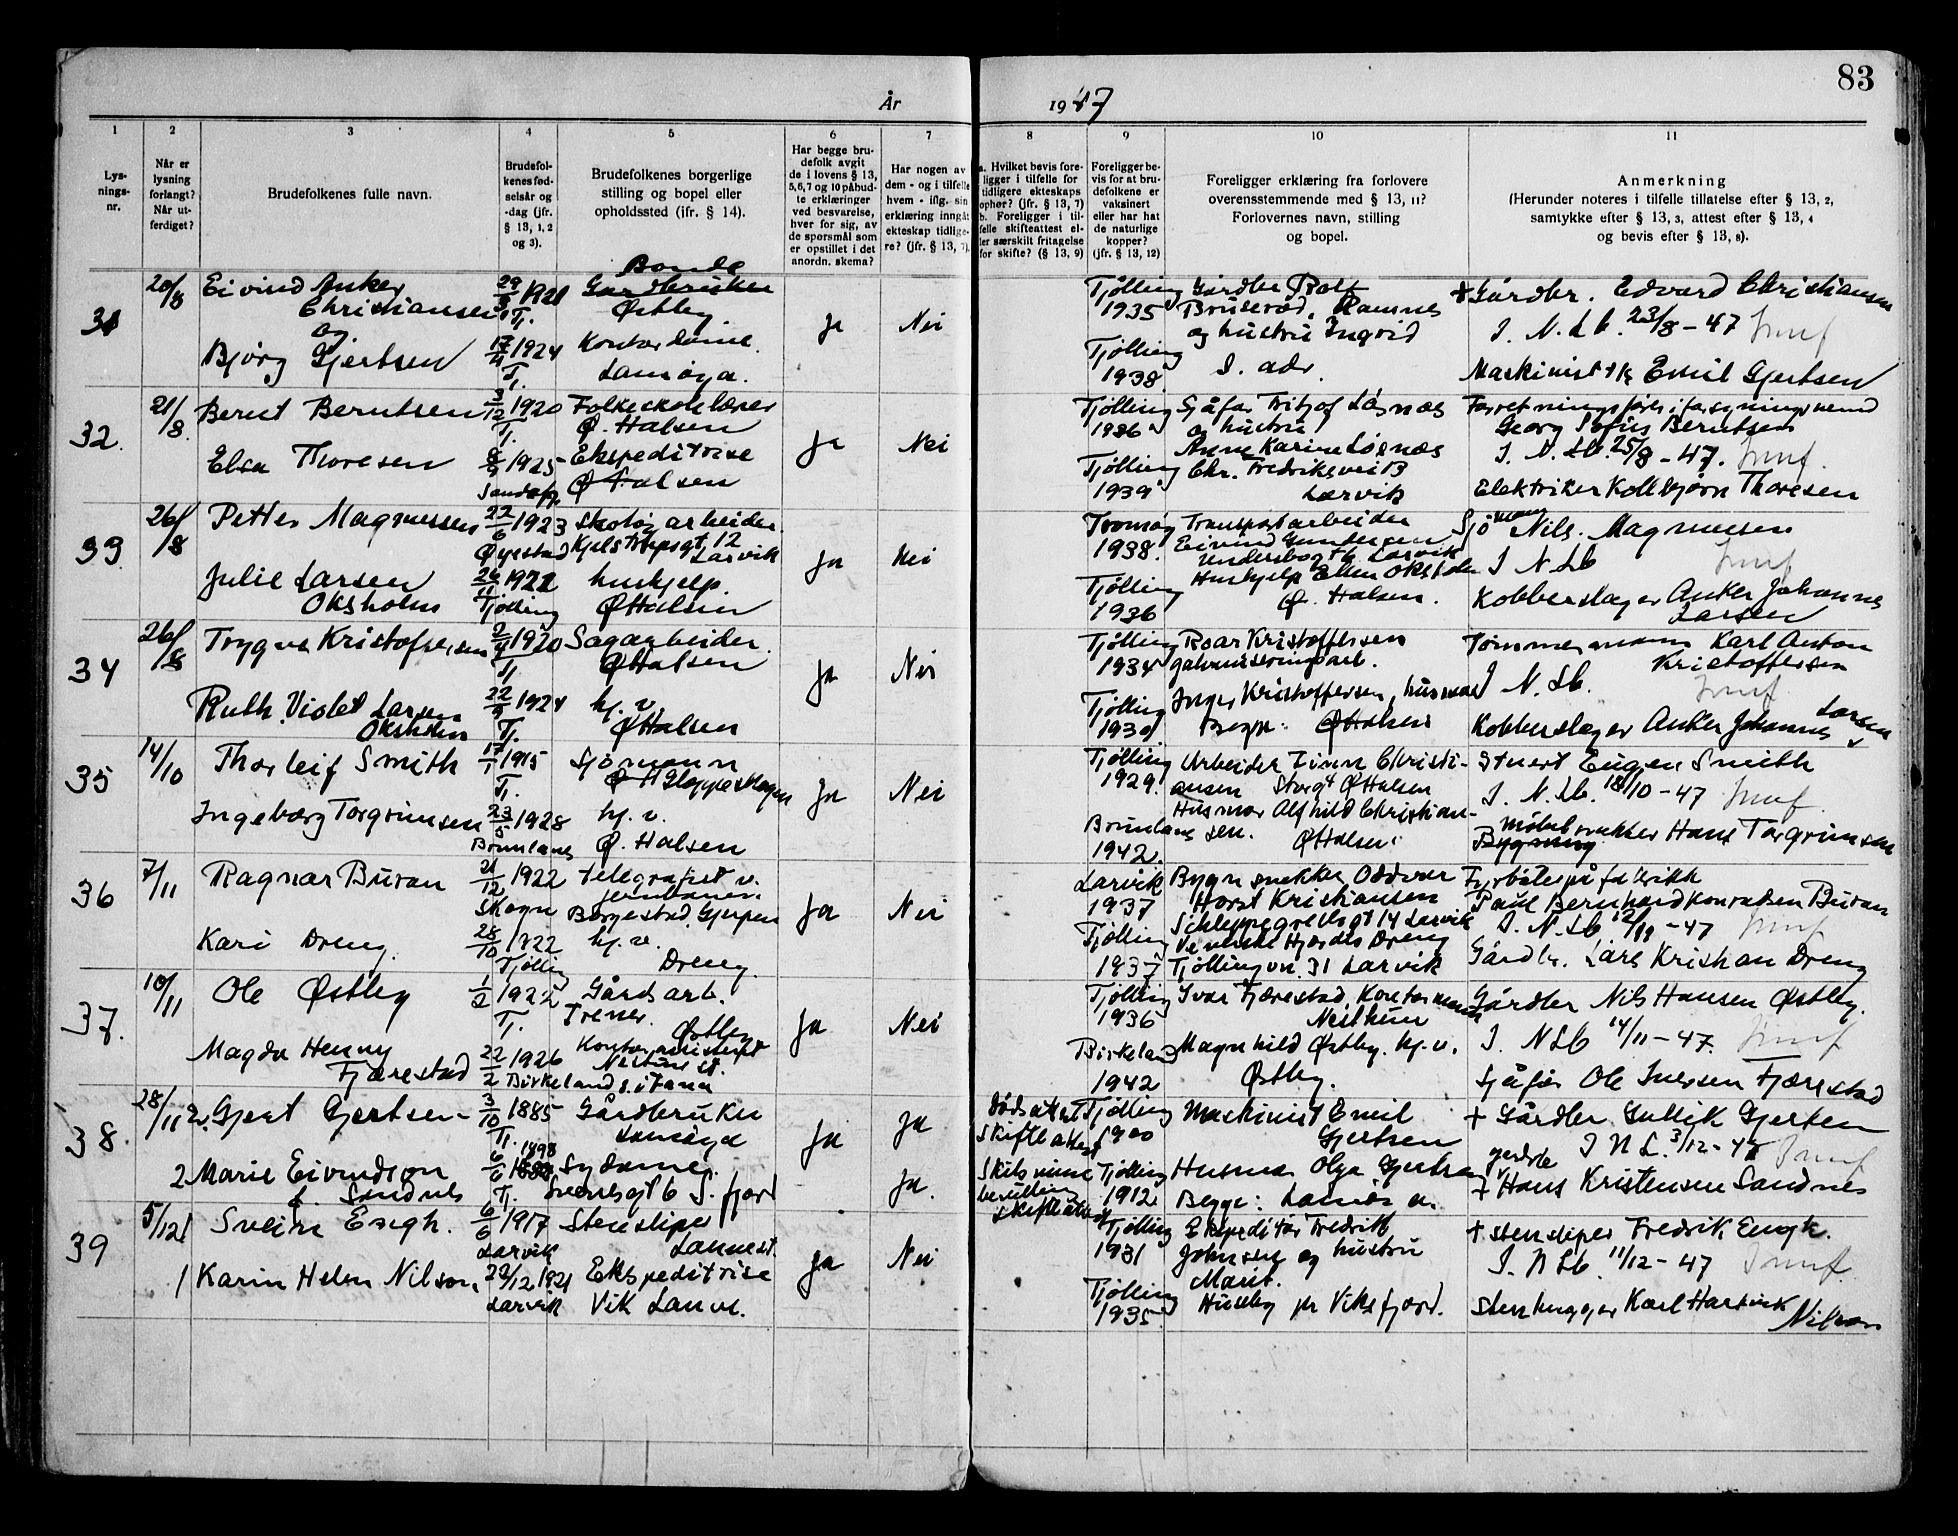 83
År 1947
1 2 3 4 5 6 7 8 9 10 11
Lys-
nings-
nr.
Når er
lysning
forlangt?
Når ut-
ferdiget?
Brudefolkenes fulle navn.
Brudefol-
kenes fød-
selsår og
-dag (jfr.
§ 13, 1, 2
og 3).
Brudefolkenes borgerlige
stilling og bopel eller
opholdssted (jfr. § 14).
Har begge bru-
defolk avgit
de i lovens § 13,
5, 6, 7 og 10 påbud-
te erklæringer
ved besvarelse,
hver for sig, av
de spørsmål som
er opstillet i det
anordn. skema?
Har nogen av
dem - og i tilfelle
hvem - iflg. sin
erklæring inngåt
ekteskap tidlige-
re? (jfr. § 13, 7).
a. Hvilket bevis fore-
ligger i tilfelle for
tidligere ekteskaps
ophør? (jfr. § 13, 7)
b. Foreligger i til-
felle skifteattest el-
ler særskilt fritagelse
for skifte? (§ 13, 9)
Foreligger be-
vis for at bru-
defolkene er
vaksinert
eller har hat
de naturlige
kopper?
(jfr. § 13, 12)
Foreligger erklæring fra forlovere
overensstemmende med § 13, 11?
Forlovernes navn, stilling
og bopel.
Anmerkning
(Herunder noteres i tilfelle tillatelse efter § 13, 2,
samtykke efter § 13, 3, attest efter § 13, 4
og bevis efter § 13, 8).
31
20/8
Eivind Anker
Christiansen
og
Bjørg Gjertsen
1921
Tj.
17/4 1924
Tj.
Bonde
Gardbruker
Østby
Kontordame.
Lamøya.
Ja
Nei
Tjølling
1935
Tjølling
1938
Gårdbr Rolf
Bruserød, Ramnes
og hustru Ingrid
S. adr.
+ Gårdbr. Edvard Christiansen
I. N. Lb. 23/8 - 47
Maskinist Emil Gjertsen
32.
21/8
Bernt Berntsen
Elsa Thoresen
3/12 1920
Tj.
1925
Sandefj.
Folkeskolelærer
Ø. Halsen
Ekspeditrise
Ø Halsen
Ja
Nei
Tjølling
1936
Tjølling
1939
Sjåfør Fritjof Løsnæs
og hustru
Anne Karine Løsnæs
Chr. Fredriksvei 13
Larvik
Forretningsfører i forsyningsnemd
Georg Sofus Berntsen
I. N. Lb. 25/8 - 47.
Elektriker Kolbjørn Thoresen
33.
26/8
Petter Magnussen
Julie Larsen
Oksholm
22/6 1923
Øyestad
26/11 1922
Tjølling
Skotøyarbeider
12
Larvik
hushjelp.
Ø Halsen
Ja
Nei
Tromøy
1938.
Tjølling
1936
Transportarbeider
Eivind Gundersen
Larvik
Hushjelp Ellen Oksholm
Ø. Halsen.
Sjømann Nils. Magnussen
I N Lb
Kobberslager Anker Johannes
Larsen
34
26/8
Trygve Kristoffersen
Ruth. Violet Larsen
Oksholm
1920
Tj
22/9 1924
Tj.
Sagarbeider.
Ø Halsen
hj. v.
Ø Halsen
Ja
Nei
Tjølling
1934
Tjølling
1939
Roar Kristoffersen
galvaniseringsarb.
Inger Kristoffersen, husmor
Begge: Ø Halsen
Tømmermann Karl Anton
Kristoffersen
I N. Lb.
Kobberslager Anker Johannes Larsen
35
14/10
Thorleif Smith
Ingeborg Torgrimsen
17/1 1915
Tj.
23/5 1928
Brunlanes
Sjømann
Gloppeskogen
hj. v.
Ø. Halsen
Ja
Nei
Tjølling
1929.
Brunlanes
1942.
Arbeider Finn Christi-
ansen Storgt Ø Halsen
Husmor Alfhild Christian-
sen. Ø Halsen.
Stuert Eugen Smith
I. N. Lb. 18/10 - 47
Møbelsnekker Hans Torgrimsen
36
7/11
Ragnar Buran
Kari Dreng.
21/12 1922
Skogn
28/10 1922
Tjølling
Telegrafist v.
Jernbanen
Borgestad, Gjerpen
hj. v.
Dreng.
Ja
Nei
Larvik
1937
Tjølling
1937
Bygn snekker Oddvar
Horst Kristiansen
Schleppegrellsgt 14 Larvik
Veninne Hjørdis Dreng
Tjøllingvn. 31 Larvik
Fyrbøter på fabrikk
Paul Bernhard Konradsen Buran
I. N. Lb 12/11 - 47
Gårdbr. Lars Kristian Dreng
37.
10/11
Ole Østby
Magda Henny
Fjærestad
1/2 1922
Tj.
22/2 1926
Birkeland
Gårdsarb.
Trener.
Østby
Kontorassistent
Ja
Nei
Tjølling
1936
Birkeland
1942
Ivar Fjærestad, Kontormann
Nesttun
Magnhild Østby. hj. v.
Østby.
Gårdbr Nils Hansen Østby.
I. N Lb 14/11 - 47.
Sjåfør Ole Iversen Fjærestad
38.
28/11
2. Gjert Gjertsen
2 Marie Eivindson
f. Sandnes
3/10 1885
Tj.
6/6 1898
Tj.
Gårdbruker
Lamøya
Sydame.
Sverresgt 6 S. fjord
Ja
Ja
Ja.
Dødsattest
Skifteattest
Skilsmisse
bevilling
skifteattest
Tjølling
1900
Tjølling
1912
Maskinist Emil
Gjertsen
Husmor Olga Gjertsen
Begge: Lamøya.
+ Gårdbr Gullik Gjertsen
I N L. 3/12 - 47
+ Hans Kristensen Sandnes
39
5/12
1 Svein Engh.
1 Karin Helen Nilson,
6/6 1917
Larvik
22/12 1921
Larvik
Stensliper
Ekspeditrise
Vik Lauve.
Ja
Nei
Tjølling
1931
Tjølling
1935
Ekspeditør Fredrik
Johnsen og hustru
Marit.
Huseby pr Viksfjord.
+ Stensliper Fredrik Engh.
I. N Lb. 11/12 - 47
Stenhugger Karl Hartvik
Nilson